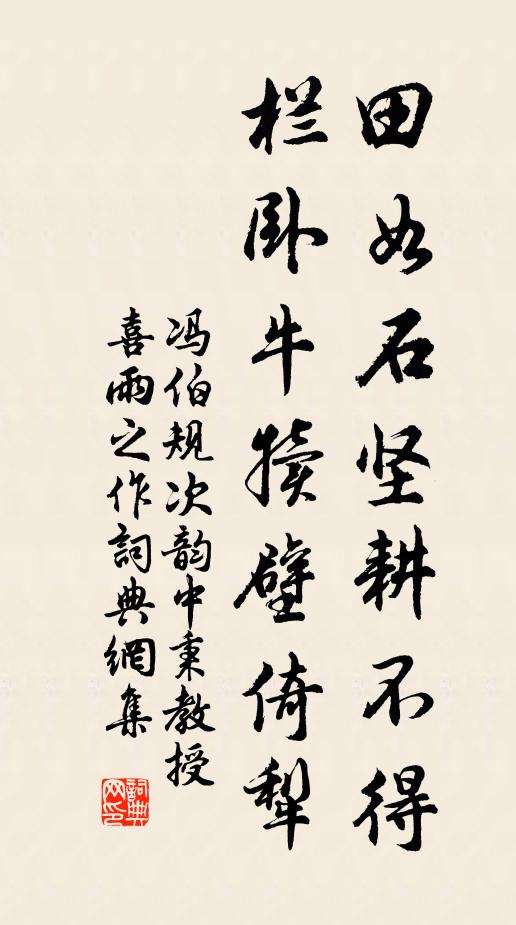 田如石坚耕不得
栏卧牛犊壁倚犁
冯伯规次韵中秉教授
喜雨之作詞典網集
詞典网印